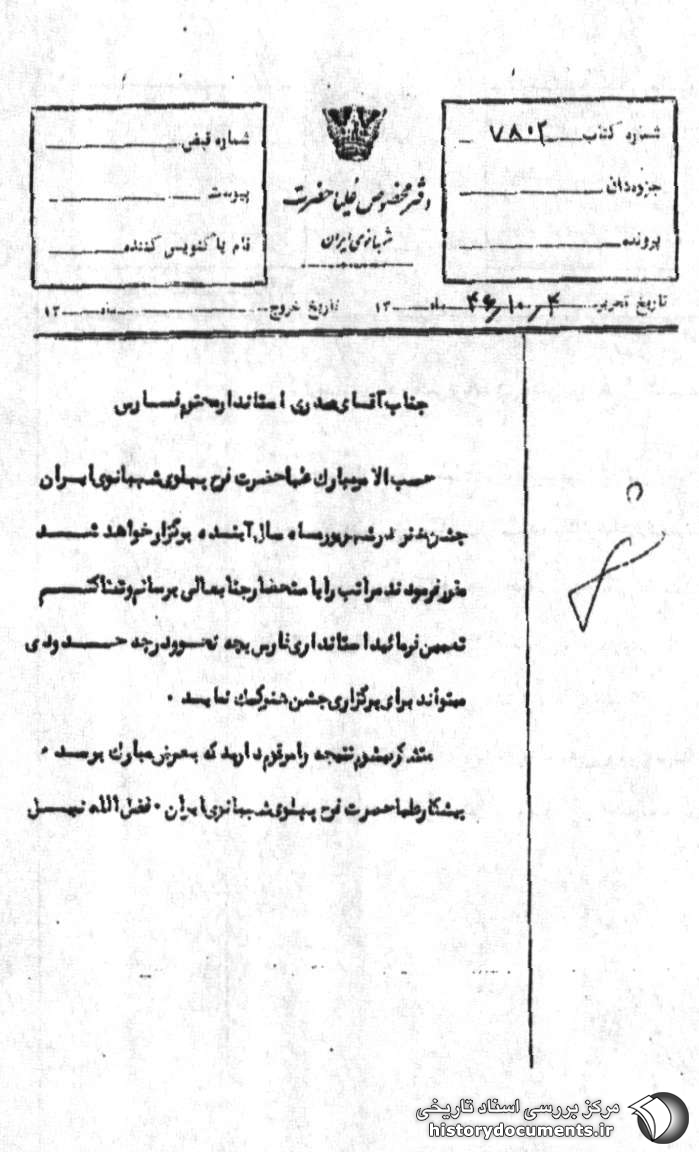 شماره کتاب ۷۸۰۲
جزوه‌دان
پرونده
دفتر مخصوص علیاحضرت
شهبانوی ایران
شماره قبض
پیوست
نام پاکنویس کننده
تاریخ تحریر ۴۶٫۱۰٫۴ ماه ۱۳ تاریخ خروج ماه ۱۳
جناب آقای صدری استاندار محترم فارس
حسب الامر مبارک علیاحضرت فرح پهلوی شهبانوی ایران
جشن هنر در شهریور ماه سال آینده برگزار خواهد شد
مقرر فرمودند مراتب را باستحضار جنابعالی برسانم و تمنا کنم
تعیین فرمائید استانداری فارس بچه نحو و در چه حدودی
میتواند برای برگزاری جشن هنر کمک نماید .
متشکر میشوم نتیجه را مرقوم دارید که بعرض مبارک برسد .
پیشکار علیاحضرت فرح پهلوی شهبانوی ایران . فضل الله نبیل
مرکز بررسی اسناد تاریخی
historydocuments.ir